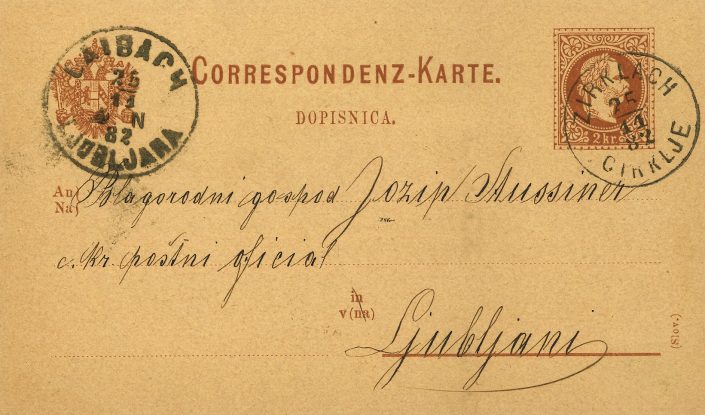 LAIBACH
25
11
N
82
LJUBLJANA
CORRESPONDENZ-KARTE.
DOPISNICA.
2 kr.
ZIRKLACH
25
11
82
CIRKLJE
An
Na) Blagorodni gospod Jozip Stussiner
c. kr poštni oficial
in
v(na) Ljubljani
(Slov.)